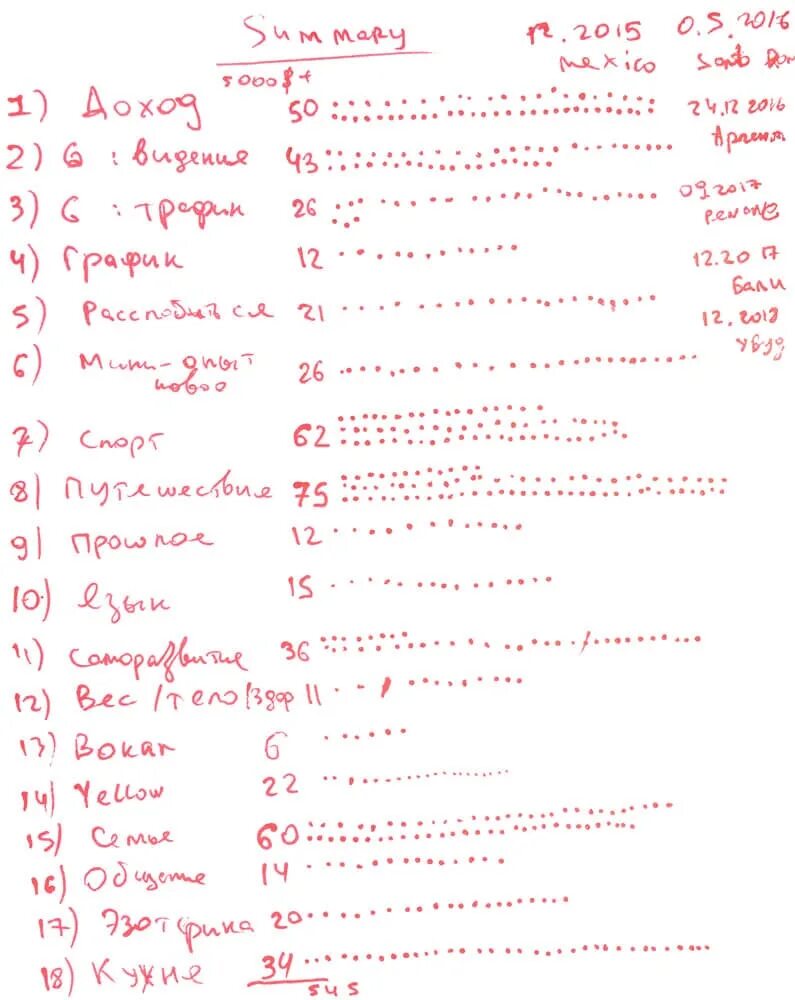 Summary
12.2015 0.5.2016
mexico Santo Dom
5000$+
1) Доход 50
24.12 2016
2) G : видение 43
3) G : трафик 26
09.2017
4) График 12
12.2017
Бали
5) Расслабиться 21
12.2018
Убуд
6) Мини-опыт 26
новое
7) Спорт 62
8) Путешествие 75
9) Прошлое 12
10) Язык 15
11) Саморазвитие 36
12) Вес/тело/здор 11
13) Вокал 6
14) Yellow 22
15) Семье 60
16) Общение 14
17) Эзотерика 20
18) Кухне 34
545